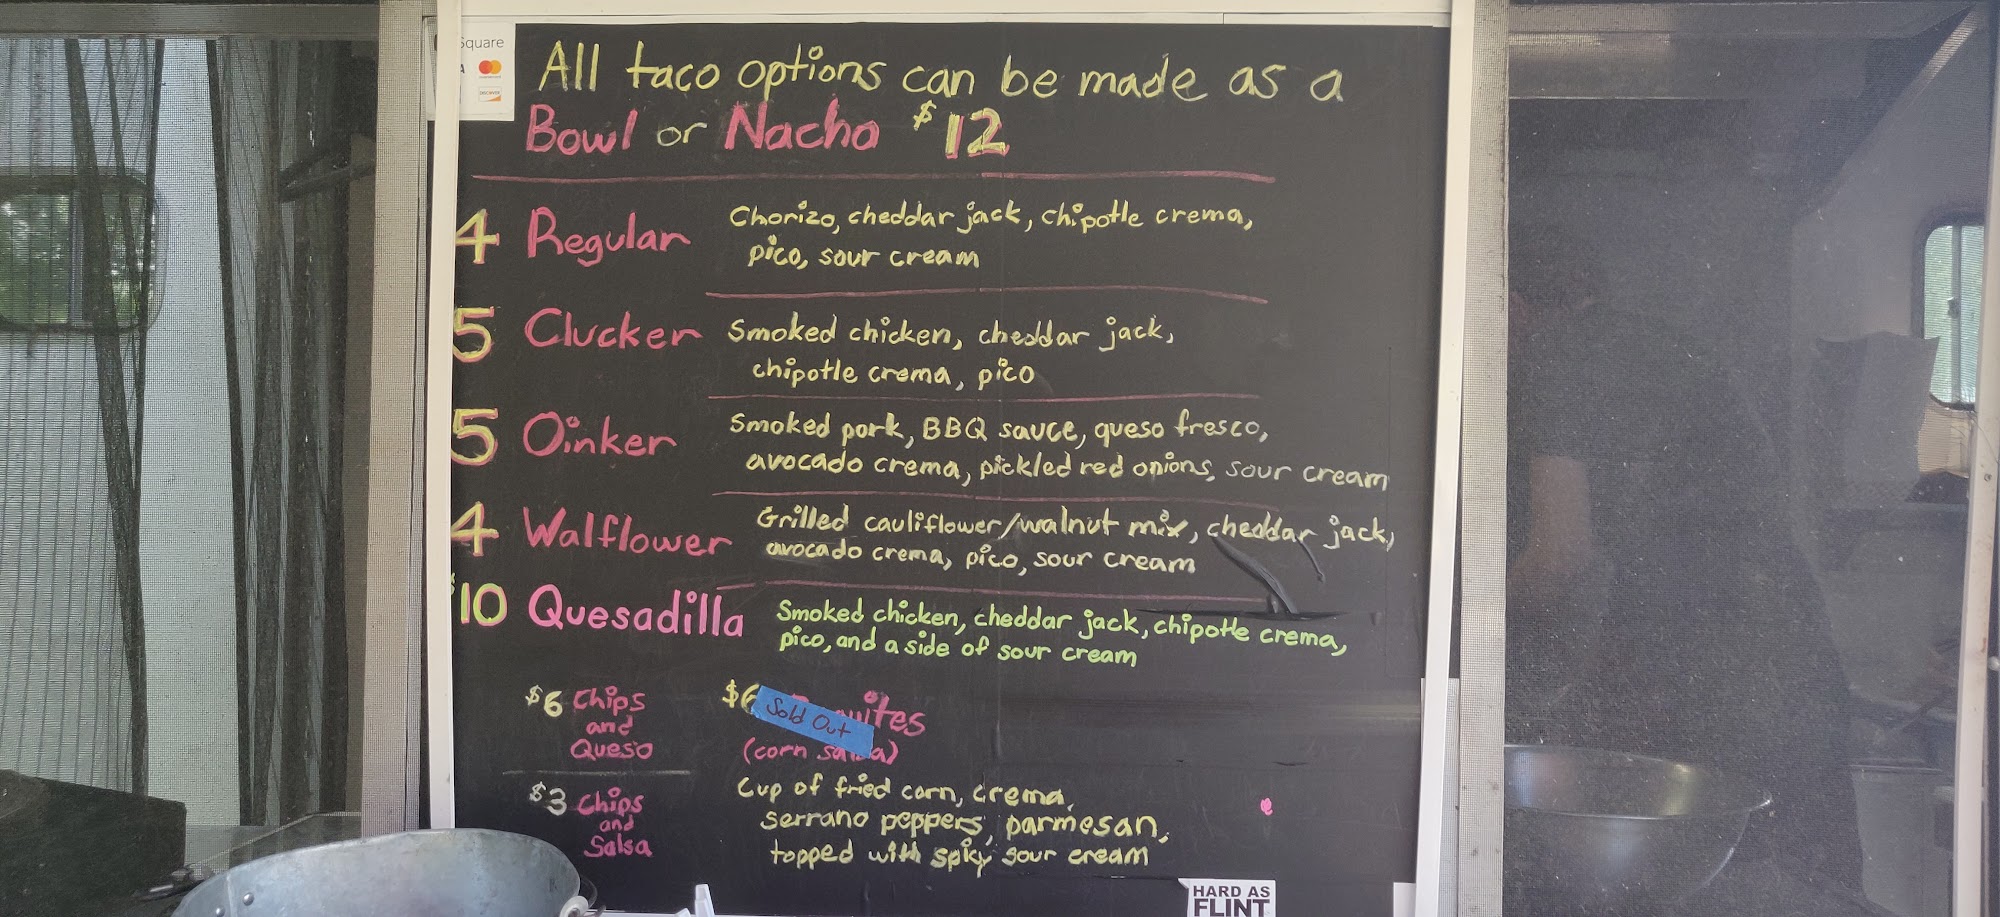 Square
DISCOVER
All taco options can be made as a
Bowl or Nacho $12
4 Regular
Chorizo, cheddar jack, chipotle crema,
pico, sour cream
5 Clucker
Smoked chicken, cheddar jack,
chipotle crema, pico
5 Oinker
Smoked pork, BBQ sauce, queso fresco,
avocado crema, pickled red onions, sour cream
4 Walflower
Grilled cauliflower/walnut mix, cheddar jack,
avocado crema, pico, sour cream
$10 Quesadilla
Smoked chicken, cheddar jack, chipotle crema,
pico, and a side of sour cream
$6 Chips
and
Queso
$3 Chips
and
Salsa
$6
Sold Out
(corn salsa)
Cup of fried corn, crema,
serrano peppers, parmesan,
topped with spicy sour cream
HARD AS
FLINT